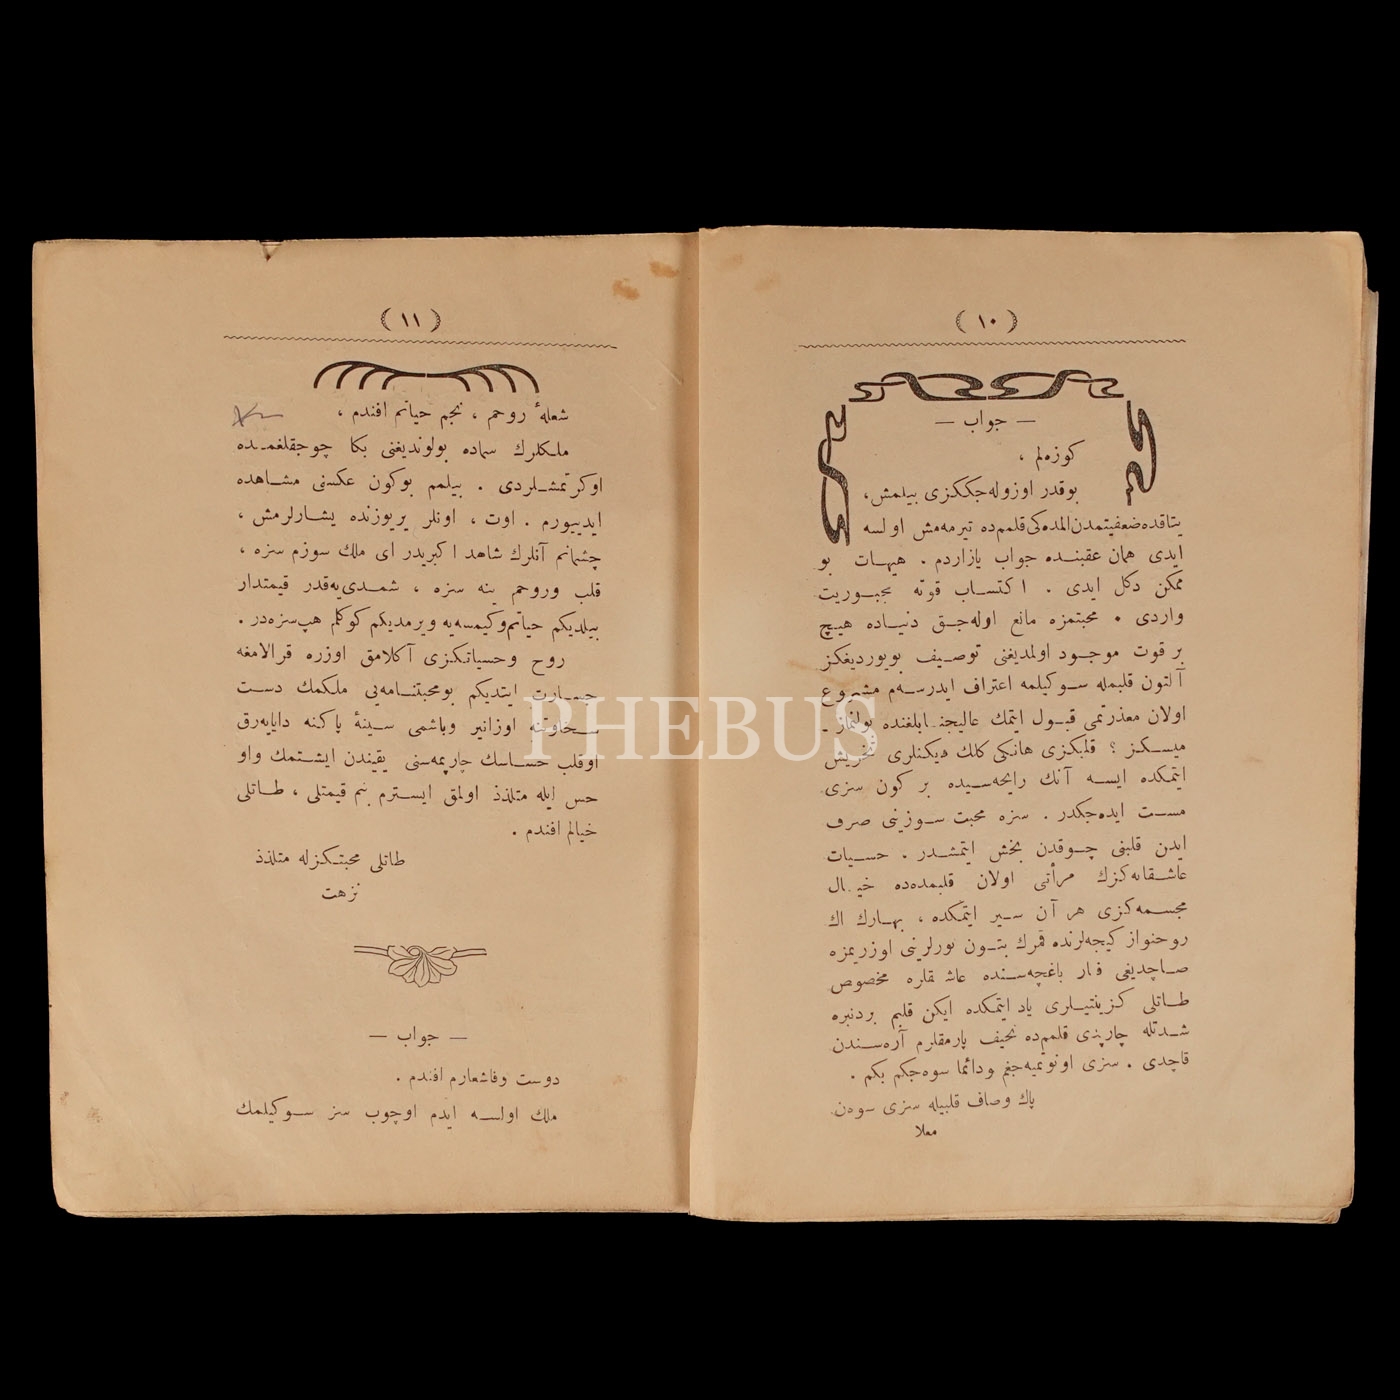 ( ١٠ )
— جواب —
كوزه‌لم ،
بوقدر اوزوله‌جككزى بيلمش،
يتاقده ضعفيتمدن المده‌كى قلممده تيره‌مه‌مش اولسه
ايدى همان عقبنده جواب يازاردم . هيهات بو
ممكن دكل ايدى . اكتساب قوته مجبوريت
واردى . محبتمزه مانع اوله‌جق دنياده هيچ
بر قوت موجود اولمديغنى توصيف بويورديغكز
آلتون قلبمله سوكيلمه اعتراف ايدرسه‌م مشروع
اولان معذرتمى قبول ايتمك عاليجنابلغنده بولنماز
ميسكز ؟ قلبكزى هانكى كلك ديكنلرى تخريش
ايتمكده ايسه آنك رايحه‌سيده بر كون سزى
مست ايده‌جكدر . سزه محبت سوزينى صرف
ايدن قلبنى چوقدن بخش ايتمشدر . حسيات
عاشقانه‌كزك مرأتى اولان قلبمده‌ده خيال
مجسمه‌كزى هر آن سير ايتمكده ، بهارك اك
روحنواز كيجه‌لرنده قمرك بتون نورلرينى اوزريمزه
صاچديغى فنار باغچه‌سنده عاشقلره مخصوص
طاتلى كزينتيلرى ياد ايتمكده ايكن قلبم بردنبره
شدتله چارپندى قلمم‌ده نحيف پارمقلرم آره‌سندن
قاچدى . سزى اونوتميه‌جغم ودائما سوه‌جكم بكم .
پاك وصاف قلبيله سزى سوه‌ن
معلا
( ١١ )
شعلۀ روحم ، نجم حياتم افندم ،
ملكلرك سماده بولونديغنى بكا چوجقلغمده
اوكرتمشلردى . بيلمم بوكون عكسنى مشاهده
ايدييورم . اوت ، اونلر يريوزنده يشارلرمش ،
چشمانم آنلرك شاهد اكبريدر اى ملك سوزم سزه ،
قلب وروحم ينه سزه ، شمدى‌يه‌قدر قيمتدار
بيلديكم حياتم‌وكيمسه‌يه ويرمديكم كوكلم هپ‌سزه‌در .
روح وحسياتكزى آكلامق اوزره قرالامغه
جسارت ايتديكم بومحبتنامه‌يى ملكمك دست
سخاوتنه اوزانير وباشمى سينۀ پاكنه دايايه‌رق
اوقلب حساسك چارپمه‌سنى يقيندن ايشتمك واو
حس ايله متلذذ اولمق ايسترم بنم قيمتلى ، طاتلى
خيالم افندم .
طاتلى محبتكزله متلذذ
نزهت
— جواب —
دوست وفاشعارم افندم .
ملك اولسه ايدم اوچوب سز سوكيلمك
PHEBUS